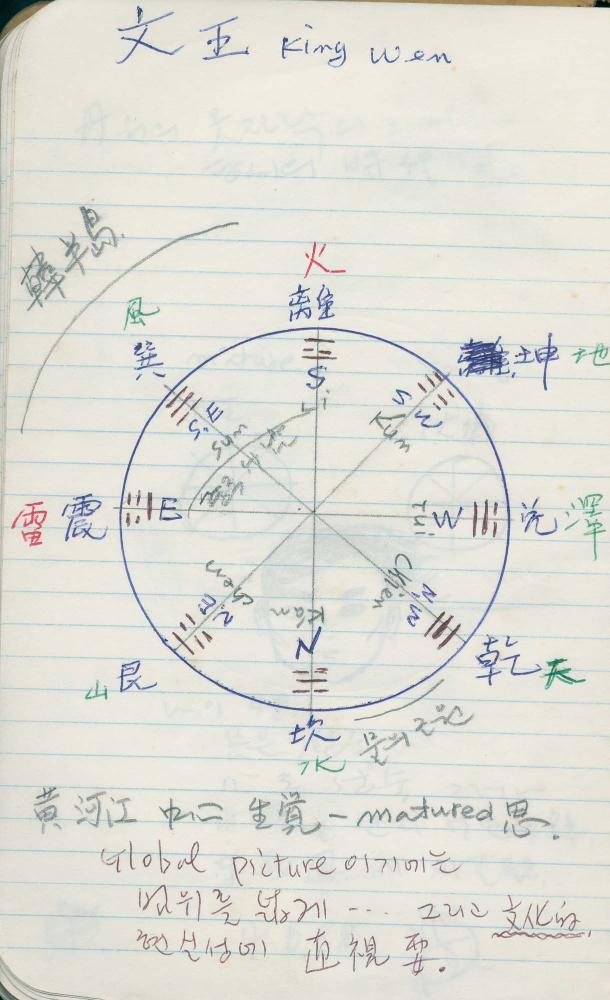 文王 King Wen
韓半島
火
離
風
巽
坤 地
S
Li
S.E
Sun
Kun
雷 震
E
W
Tui
兌 澤
N.E
Chen
Kan
N
Chien
N.W
山 艮
乾 天
坎
水
물의 근원
黃河江 中心 生覺 - matured 思.
Global picture 이기에는
범위를 넓게 ... 그리고 文化的
현실성에 直視 要.